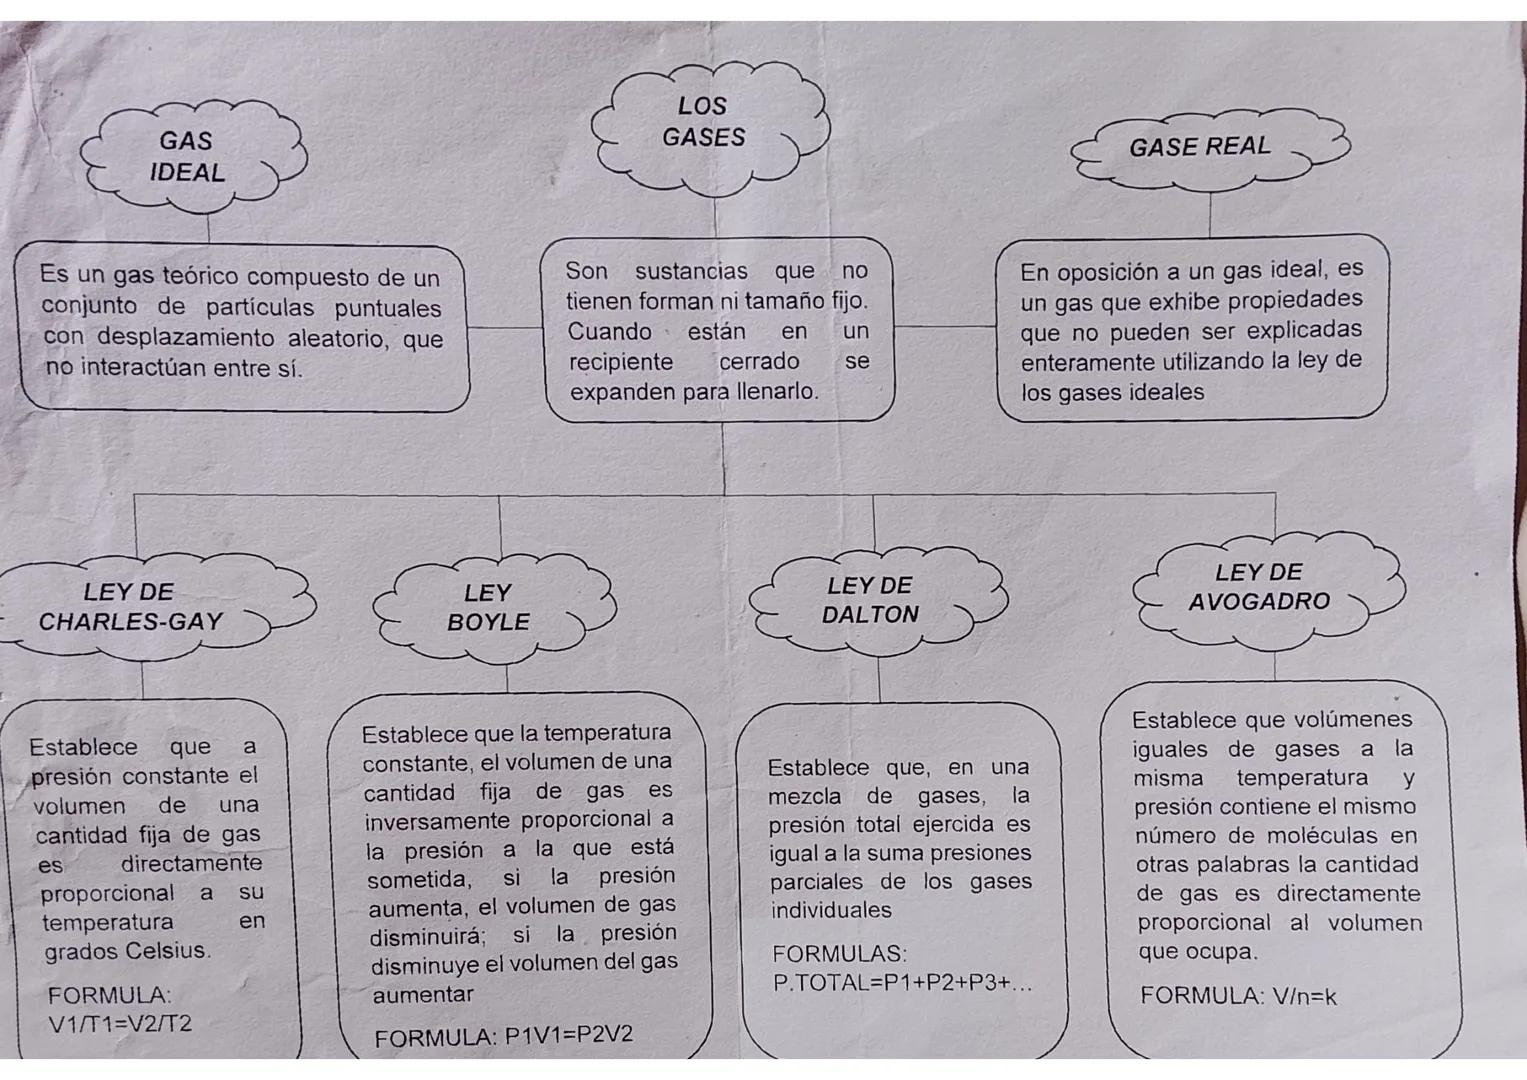 GAS
IDEAL
LOS
GASES
GASE REAL
Es un gas teórico compuesto de un
conjunto de partículas puntuales
con desplazamiento aleatorio, que
no interactúan entre sí.
Son sustancias que no
tienen forman ni tamaño fijo.
Cuando están en un
recipiente cerrado se
expanden para llenarlo.
En oposición a un gas ideal, es
un gas que exhibe propiedades
que no pueden ser explicadas
enteramente utilizando la ley de
los gases ideales
LEY DE
CHARLES-GAY
LEY
BOYLE
LEY DE
DALTON
LEY DE
AVOGADRO
Establece que a
presión constante el
volumen de una
cantidad fija de gas
es directamente
proporcional a su
temperatura en
grados Celsius.
FORMULA:
V1/T1=V2/T2
Establece que la temperatura
constante, el volumen de una
cantidad fija de gas es
inversamente proporcional a
la presión a la que está
sometida, si la presión
aumenta, el volumen de gas
disminuirá; si la presión
disminuye el volumen del gas
aumentar
FORMULA: P1V1=P2V2
Establece que, en una
mezcla de gases, la
presión total ejercida es
igual a la suma presiones
parciales de los gases
individuales
FORMULAS:
P.TOTAL=P1+P2+P3+...
Establece que volúmenes
iguales de gases a la
misma temperatura y
presión contiene el mismo
número de moléculas en
otras palabras la cantidad
de gas es directamente
proporcional al volumen
que ocupa.
FORMULA: V/n=k